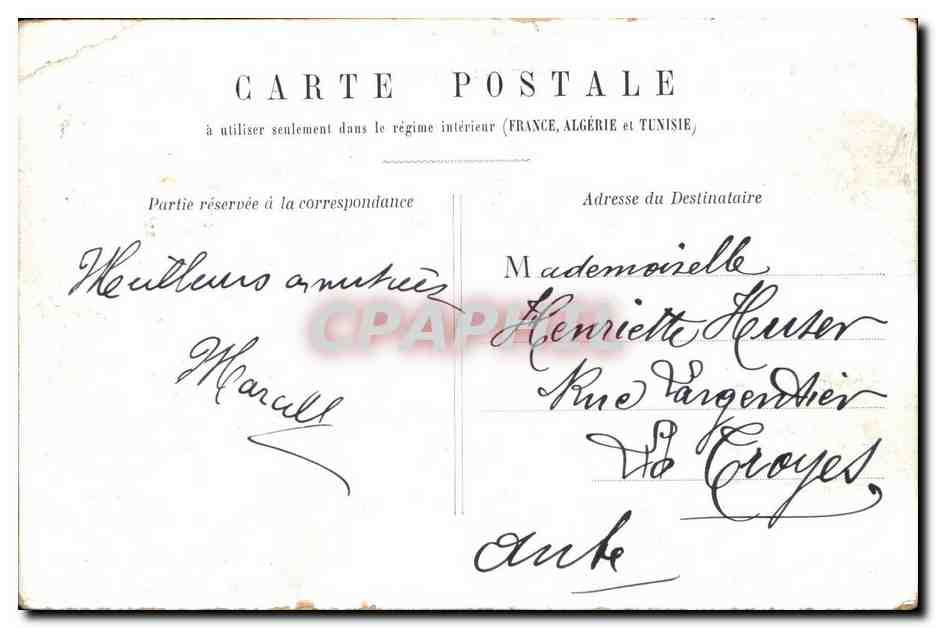 CARTE POSTALE
à utiliser seulement dans le régime intérieur (FRANCE, ALGÉRIE et TUNISIE)
Partie réservée à la correspondance
Meilleurs amitiés
Marcell
Adresse du Destinataire
Mademoiselle
Henriette Huser
Rue Largentier
Troyes
Aube
CPAPHIL